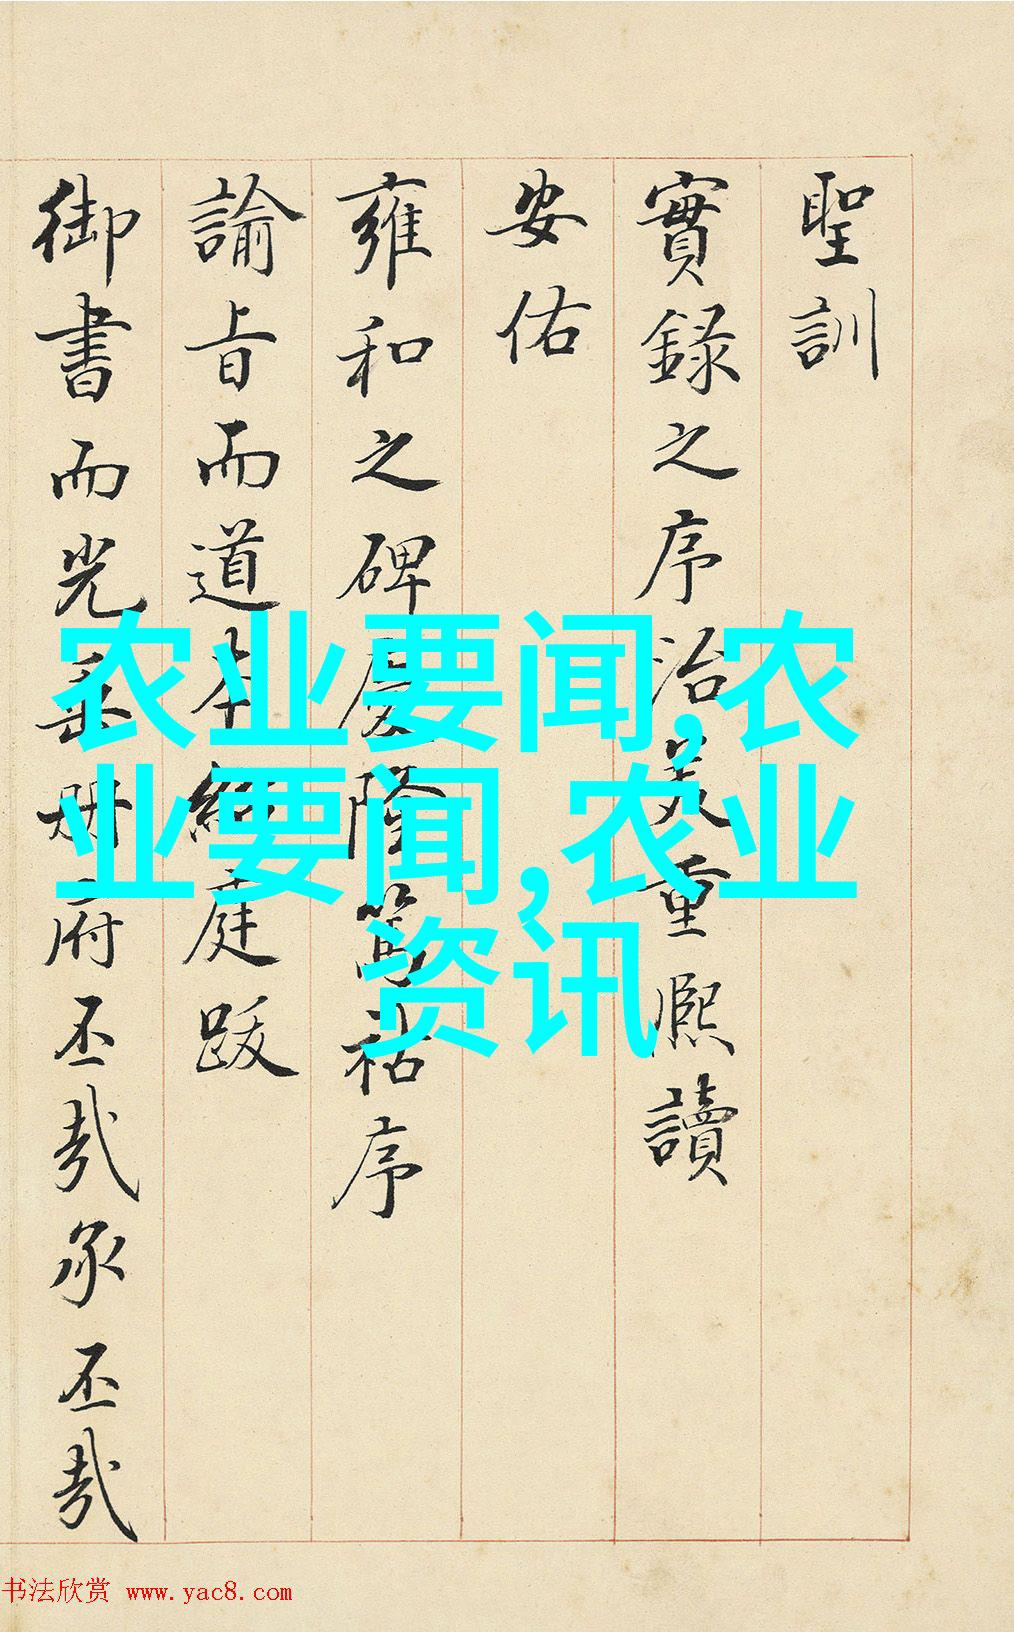 聖訓
實録之序治美重熈讀
安佑
雍和之碑慶隆篤祜序
諭旨而道本經庭跋
御書而光垂册府丕哉承丕哉
农业要闻,农
业要闻,农业
资讯
书法欣赏 www.yac8.com